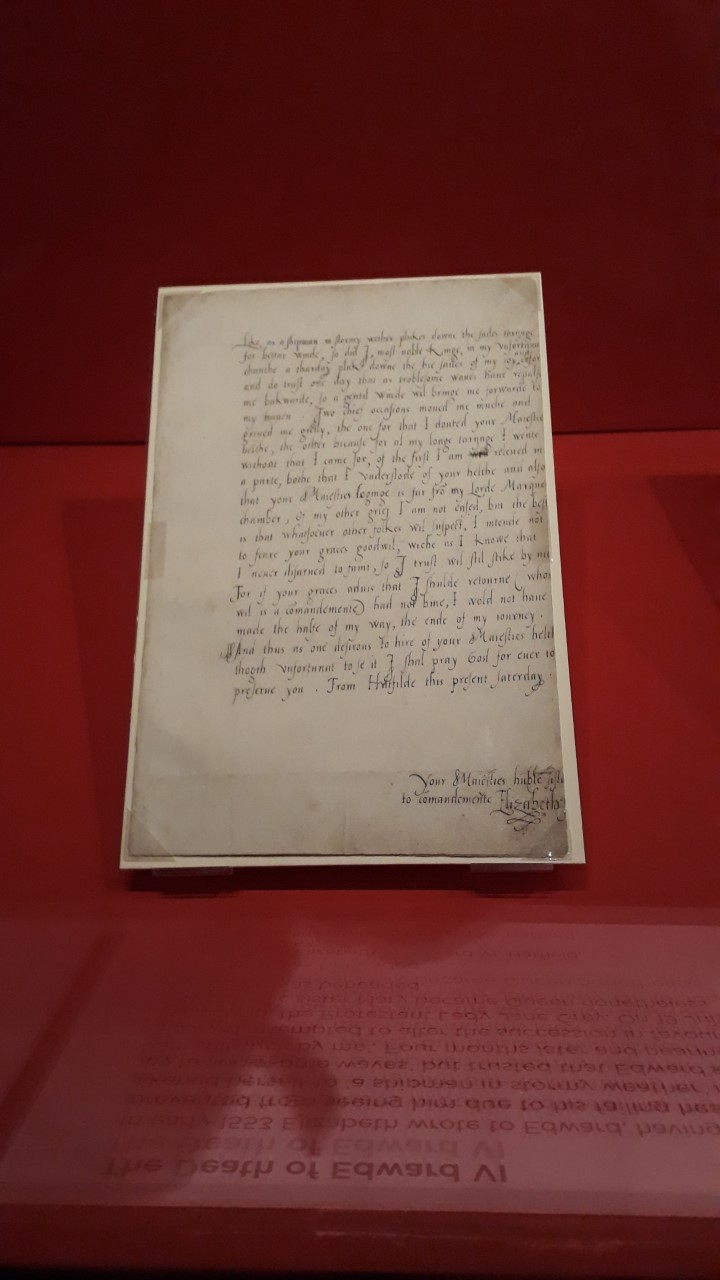 Like as a shipman in stormy wether plukes downe the sailes tarijnge
for bettar winde, so did I, most noble Kinge, in my vnfortuna
chanche a thurday pluk downe the hie sailes of my ioy
and do trust one day that as troblesome waues haue repuls
me bakwarde, so a gentil winde wil bringe me forwarde to
my hauen. Two chief occasions moued me muche and
griued me gretly, the one for that I douted your Maiestie
helthe, the other bicause for al my longe tarijnge I wente
without that I came for, of the first I am releued in
a parte, bothe that I vnderstode of your helthe and also
that your Maiesties loginge is far frō my Lorde Marque
chamber, Of my other grief I am not eased, but the best
is that whatsoeuer other folkes wil suspect, I intende not
to feare your graces goodwil, wiche as I knowe that
I neuer disarued to faint, so I trust wil stil stike by me
For if your graces aduis that I shulde retourne (whos
wil is a comandemente) had not bine, I wold not haue
made the halfe of my way, the ende of my iourney.
And thus as one desirous to hire of your Maiesties helth
thogth vnfortunat to se it I shal pray God for euer to
preserue you. From Hatfilde this present saterday
Your Maiesties hūble sistar
to comandemente Elizabeth
sister Mary became Queen nonetheless
the Protestant Lady Jane Grey. On 19 Jul
to alter the succession in favour
by me'. Four months later and nearing
waves, but trusted that Edward's
to 'a shipman in stormy weather'
from seeing him due to his failing hea
1553 Elizabeth wrote to Edward, having
The Death of Edward VI